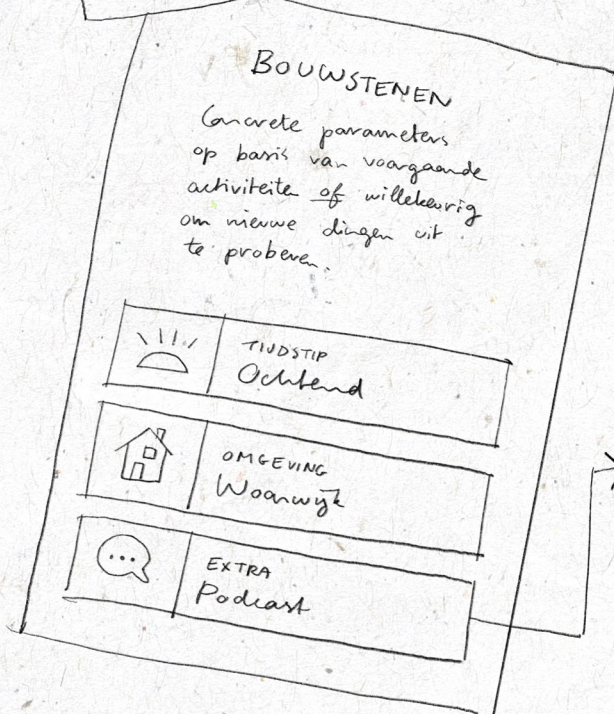 BOUWSTENEN
Concrete parameters
op basis van voorgaande
activiteiten of willekeurig
om nieuwe dingen uit
te proberen.
TIJDSTIP
Ochtend
OMGEVING
Woonwijk
EXTRA
Podcast